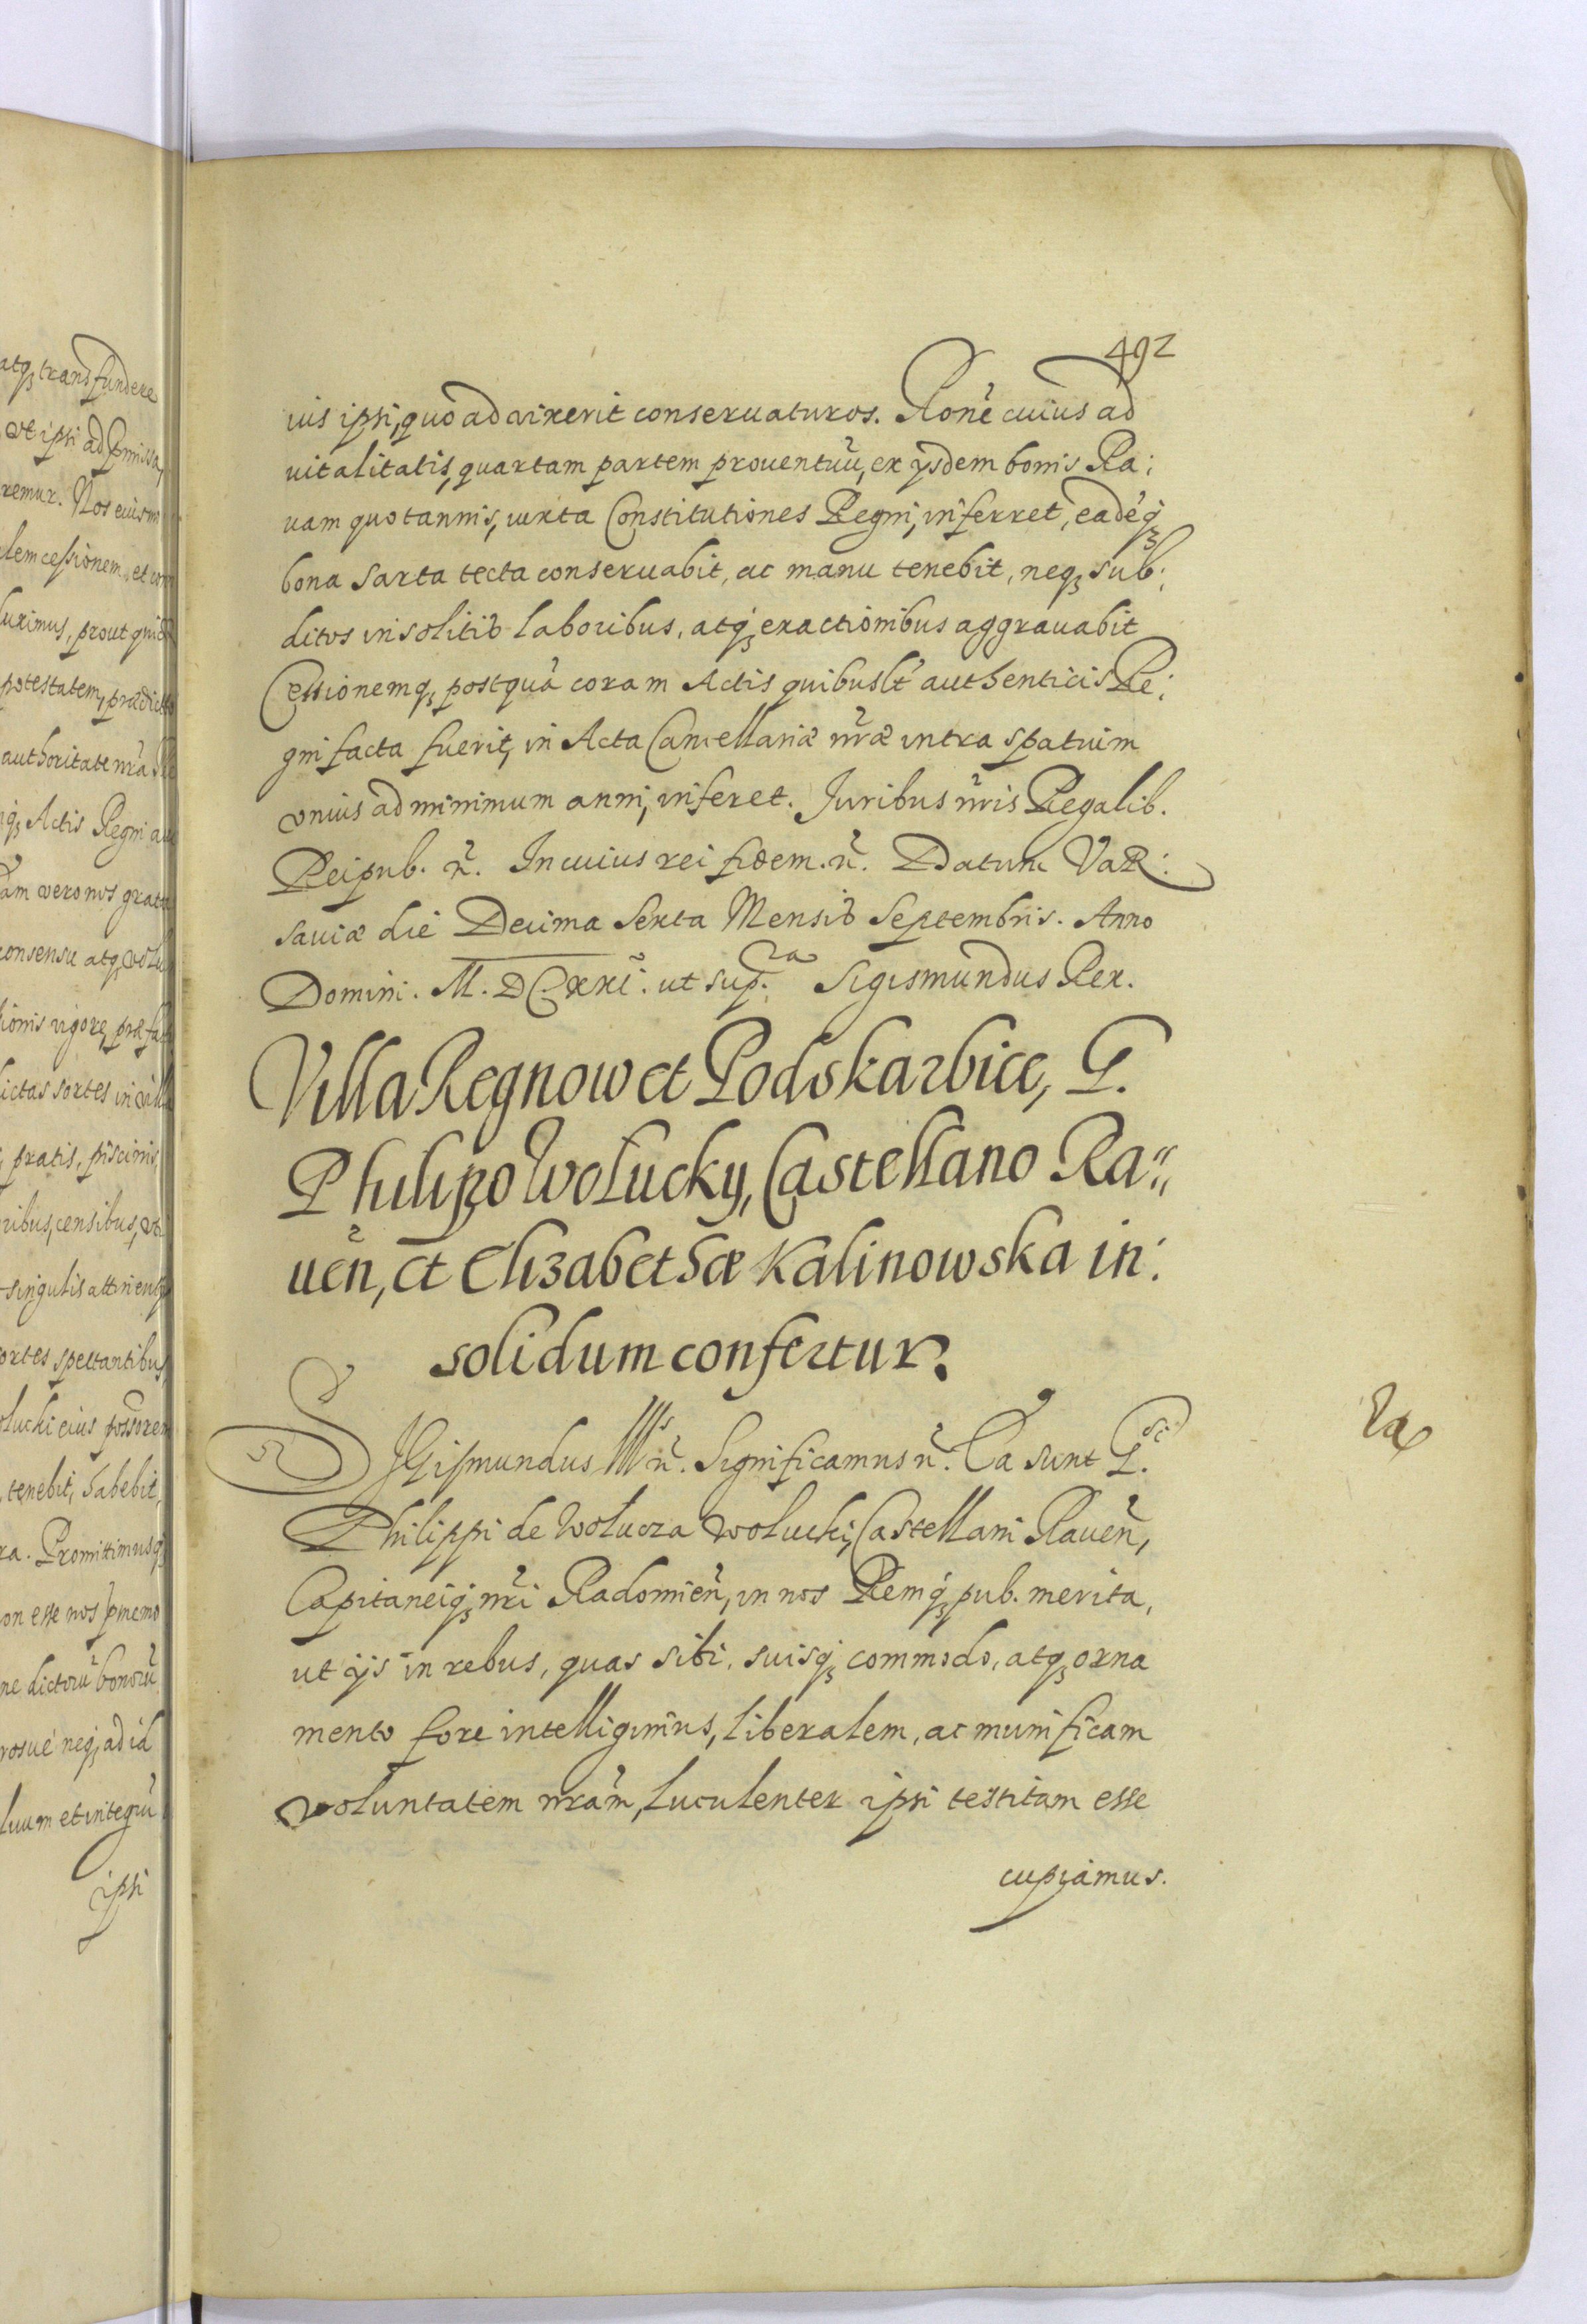 atq₃ transfundere
vt ipsi ad
remur. Nos
lem cessionem, et
luximus, prout
potestatem, prædict
authoritate nrã
Actis Regni
am vero nos
consensu atq₃
ionis vigore, præfa
ictas sortes in
, pratis, piscinis,
ribus, censibus,
singulis
ortes spectantibus,
oluchi eius
tenebit, habebit,
ra. Promittimusq₃
on esse nos
ne dictorũ bonorũ
neq₃ ad id
et integrũ
ipsi
492
ius ipsi, quo ad vixerit conseruaturos. Ronẽ cuius ad
uitalitatis, quartam partem prouentuũ, ex ijsdem bonis Ra:
uam quotannis, iuxta Constitutiones Regni, inferret, eadẽq₃
bona sarta tecta conseruabit, ac manu tenebit, neq₃ sub:
ditos insolitis laboribus, atq₃ exactionibus aggrauabit
Cessionemq₃ postquã coram Actis quibuslt authenticis Re:
gni facta fuerit, in Acta Cancellariæ nræ intra spatium
vnius ad minimum anni, inferet. Juribus nris Regalib.
Reipub. ñ. In cuius rei fidem. ñ. Datum VaR:
sauiæ die Decima Sexta Mensis Septembris. Anno
Domini. M. DC. XXI. ut sup.ra Sigismundus Rex.
Villa Regnow et Podskarbice, G.
Philippo Wolucky, Castellano Ra:
ueñ, et Elizabethæ Kalinowska in:
solidum confertur.
SIGismundus IIIs ñ. Significamus ñ. Ea sunt G.si
Philippi de Wolucza Wolucki, Castellani Raueñ,
Capitaneiq₃ nri Radomieñ, in nos Remq₃ pub. merita,
ut ijs in rebus, quas sibi, suisq₃ commodo, atq₃ orna
mento fore intelligimus, liberalem, ac munificam
voluntatem nram, luculenter ipsi testitam esse
cupiamus.